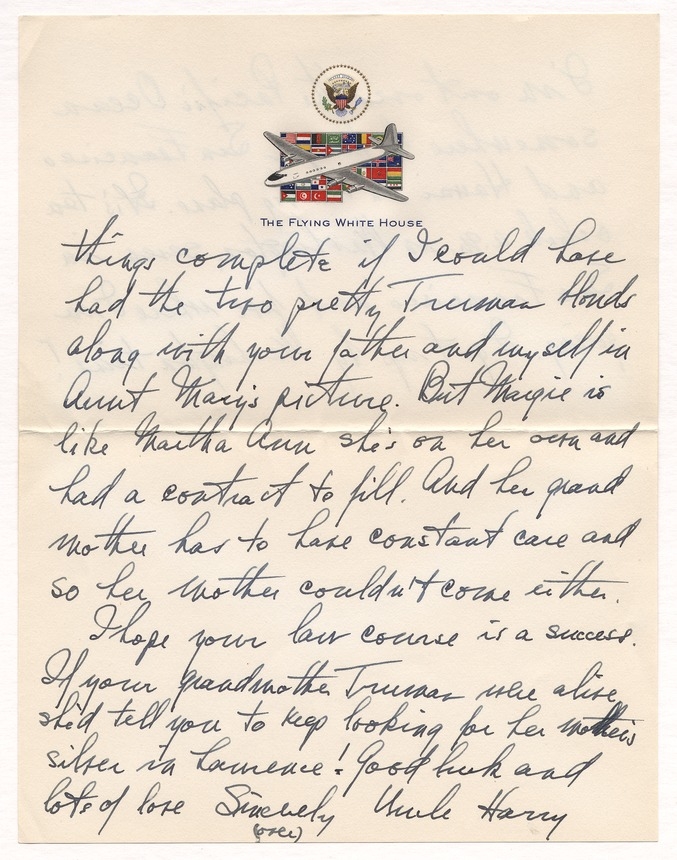 THE FLYING WHITE HOUSE
things complete if I could have
had the two pretty Truman blonds
along with your father and myself in
Aunt Mary's picture. But Margie is
like Martha Ann she's on her own and
had a contract to fill. And her grand
mother has to have constant care and
so her mother couldn't come either.
I hope your law course is a success.
If your grandmother Truman were alive
she'd tell you to keep looking for her mother's
silver in Lawrence! Good luck and
lots of love Sincerely Uncle Harry
(over)